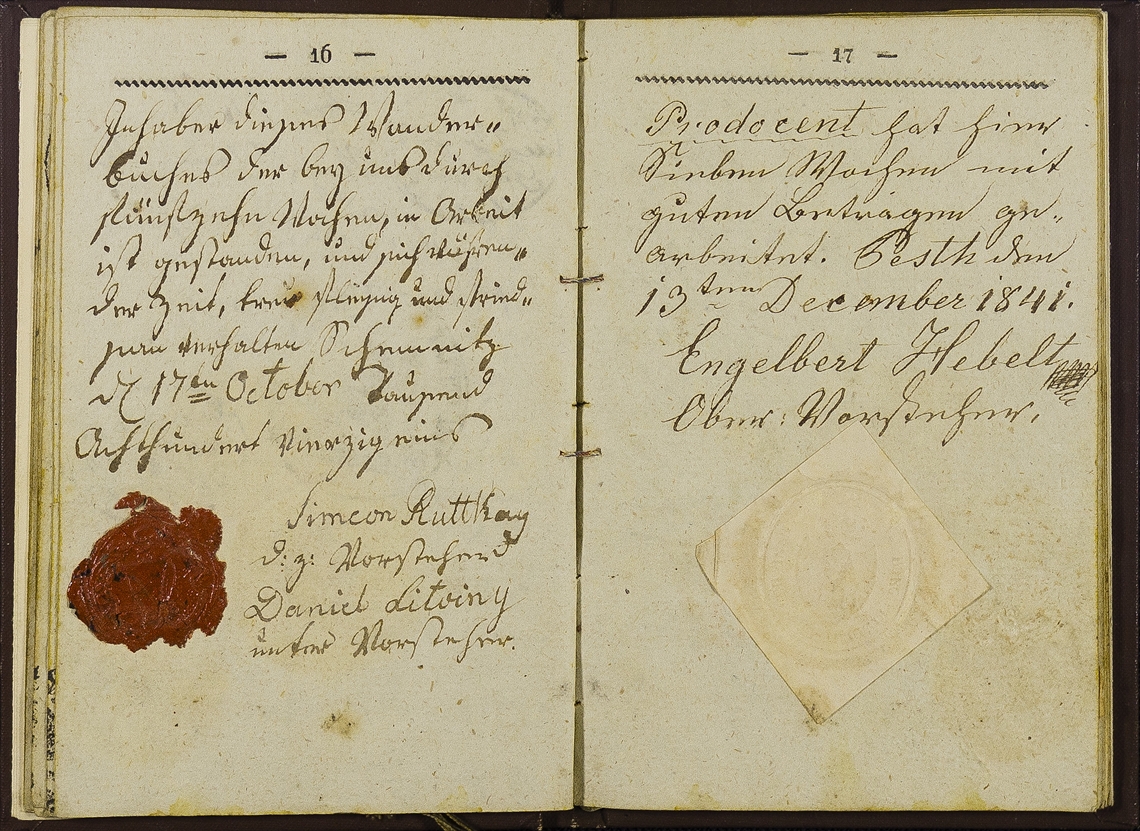 — 16 —
Inhaber dieses Wander-
buches der bey uns durch
fünfzehn Wochen, in Arbeit
ist gestanden, und sich währen-
der Zeit, treu fleißig und fried-
sam verhalten Schemnitz
d 17ten October Tausend
Achthundert Vierzig eins
Simeon Ruttkay
d: z: Vorsteher
Daniel Litviny
unter Vorsteher.
— 17 —
Prodocent hat hier
Sieben Wochen mit
guten Betragen ge-
arbeitet. Pesth den
13ten December 1841.
Engelbert Hebelt
Ober: Vorsteher.